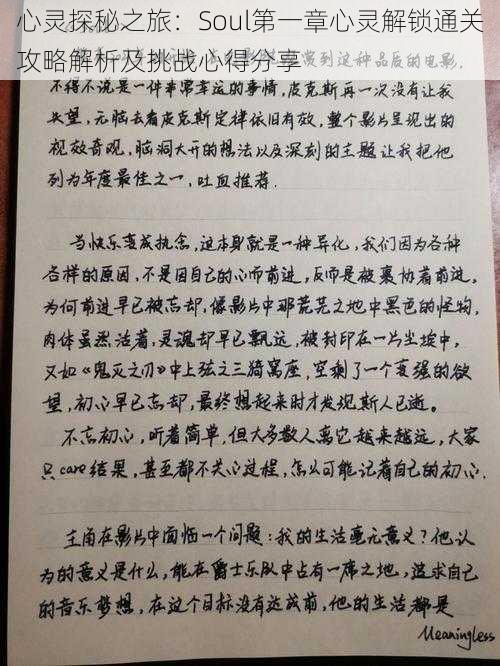 心灵探秘之旅：Soul第一章心灵解锁通关
攻略解析及挑战心得分享
赏到这种品质的电影,
不得不说是一件非常幸运的事情,皮克斯再一次没有让我
失望,无脑去看皮克斯定律依旧有效,整个影片呈现出的
视效奇观,脑洞大开的想法以及深刻的主题让我把他
列为年度最佳之一,吐血推荐.
当快乐变成执念,这本身就是一种异化,我们因为各种
各样的原因,不是因自己的心而前进,反而是被裹协着前进,
为何前进早已被忘却,像影片中那荒芜之地中黑色的怪物,
肉体虽然活着,灵魂却早已飘远,被封印在一片尘埃中,
又如《鬼灭之刃》中上弦之三猗窝座,空剩了一个变强的欲
望,初心早已忘却,最终想起来时才发现斯人已逝。
不忘初心,听着简单,但大多数人离它越来越远,大家
只care结果,甚至都不关心过程,怎么可能记着自己的初心.
主角在影片中面临一个问题:我的生活毫无意义?他认
为的意义是什么,能在爵士乐队中占有一席之地,追求自己
的音乐梦想,在这个目标没有达成前,他的生活都是
Meaningless